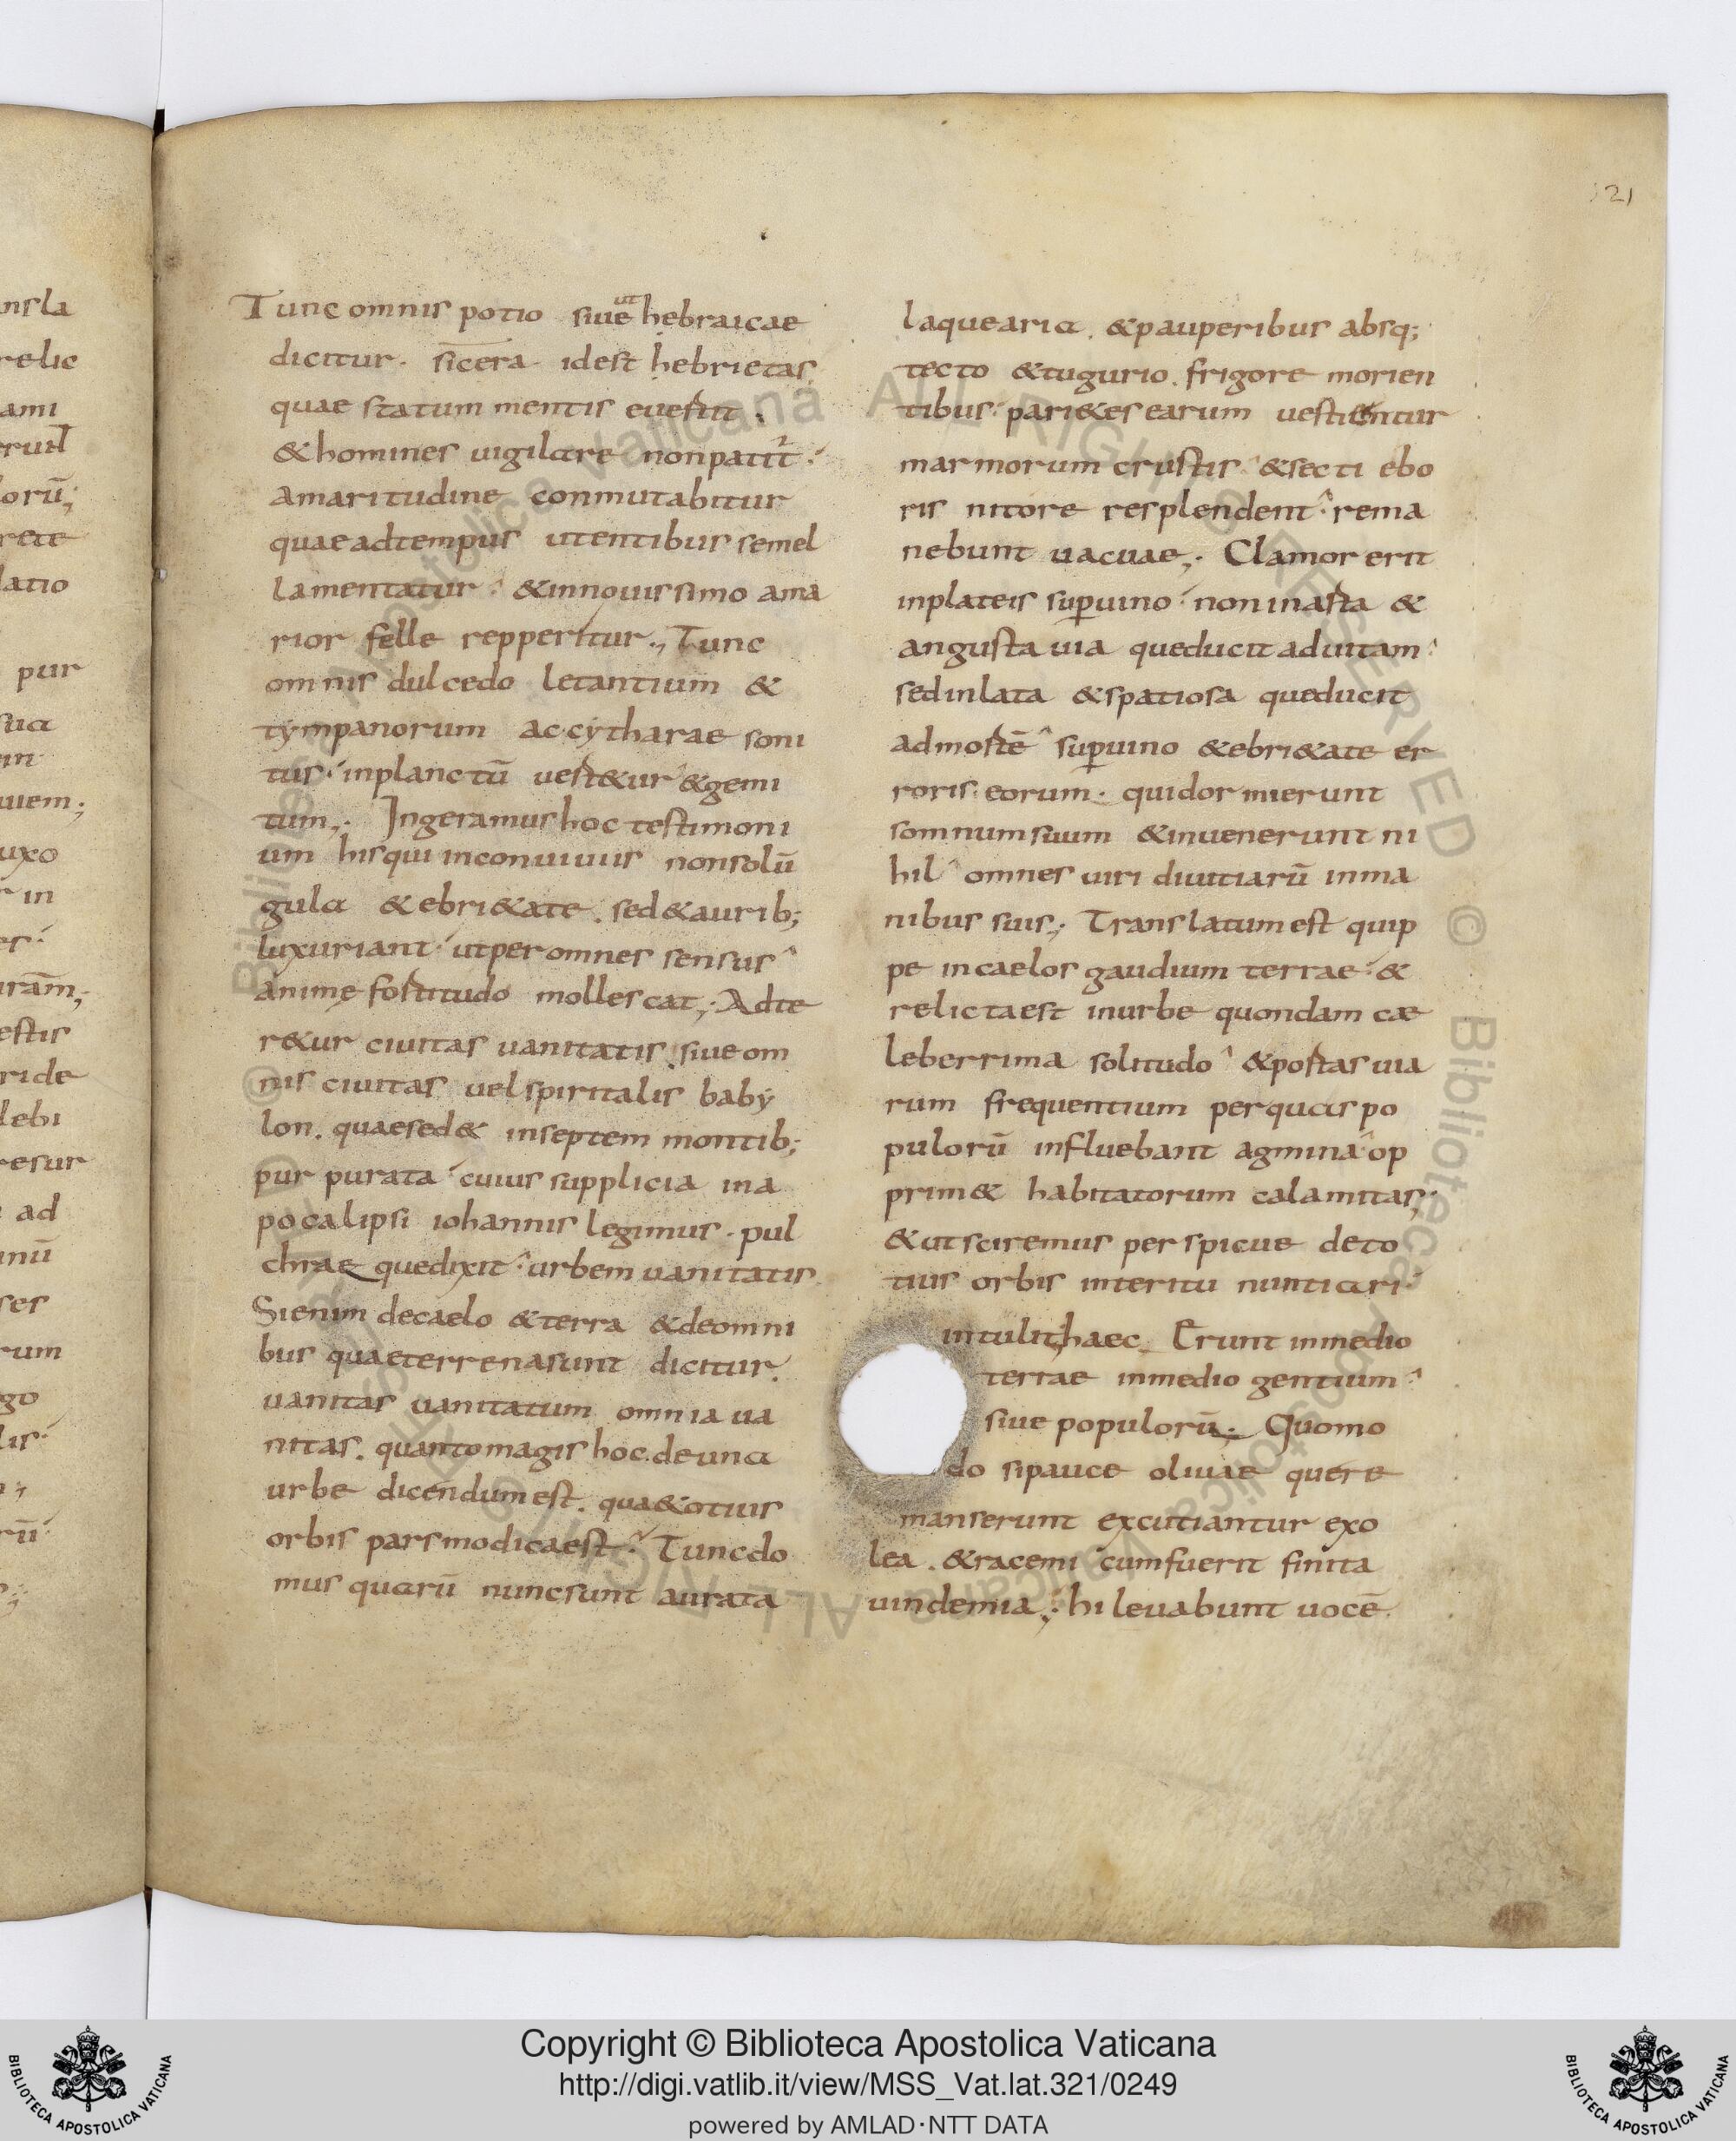 121
Tunc omnis potio siue ut hebraicae
dicitur. sicera idest hebrietas
quae statum mentis euertit.
& homines uigilare non patit̃
amaritudine conmutabitur
quae ad tempus utentibus semel
lamentatur & in nouissimo ama
rior felle repperitur., Tunc
omnis dulcedo letantium &
tympanorum ac cytharae soni
tus in planctū uert&ur & gemi
tum;. Ingeramus hoc testimoni
um his qui in conuiuiis non solū
gula & ebri&ate. sed & aurib;
luxuriant ut per omnes sensus
animę fortitudo mollescat;. Adte
r&ur ciuitas uanitatis siue om
nis ciuitas uel spiritalis baby
lon. quae sed& in septem montib;
purpurata cuius supplicia in a
pocalipsi iohannis legimus. pul
chrae que dixit urbem uanitatis
Si enim de caelo & terra & de omni
bus quae terrena sunt dicitur.
uanitas uanitatum omnia ua
nitas. quanto magis hoc. de una
urbe dicendum est. quae totius
orbis pars modica est. Tunc do
mus quarū nunc sunt aurata
laquearia. & pauperibus absq;
tecto & tugurio. frigore morien
tibus pari&es earum uestientur
marmorum crustis & secti ebo
ris nitore resplendent rema
nebunt uacuae;. Clamor erit
in plateis sup uino non in arta &
angusta uia que ducit ad uitam
sed in lata & spatiosa que ducit
ad mortē sup uino & ebri&ate er
roris eorum. qui dormierunt
somnum suum & inuenerunt ni
hil omnes uiri diuitiarū in ma
nibus suis;. Translatum est quip
pe in caelos gaudium terrae &
relicta est in urbe quondam cae
leberrima solitudo & portas uia
rum frequentium per quas po
pulorū influebant agmina op
prim& habitatorum calamitas;
& ut sciremus perspicue de to
tius orbis interitu nuntiari
intulit haec. Erunt in medio
terrae in medio gentium
siue populorū;. Quomo
do si pauce oliuae quere
manserunt excutiantur ex o
lea. & racemi cum fuerit finita
uindemia; hi leuabunt uocē
nsla
relic
ami
orū;
rete
latio
pur
sua
in
uiem;
uxo
in
estis
ride
debi
resur
ad
ses
rum
go
lis
Copyright © Biblioteca Apostolica Vaticana
http://digi.vatlib.it/view/MSS_Vat.lat.321/0249
powered by AMLAD·NTT DATA
BIBLIOTECA APOSTOLICA VATICANA
BIBLIOTECA APOSTOLICA VATICANA